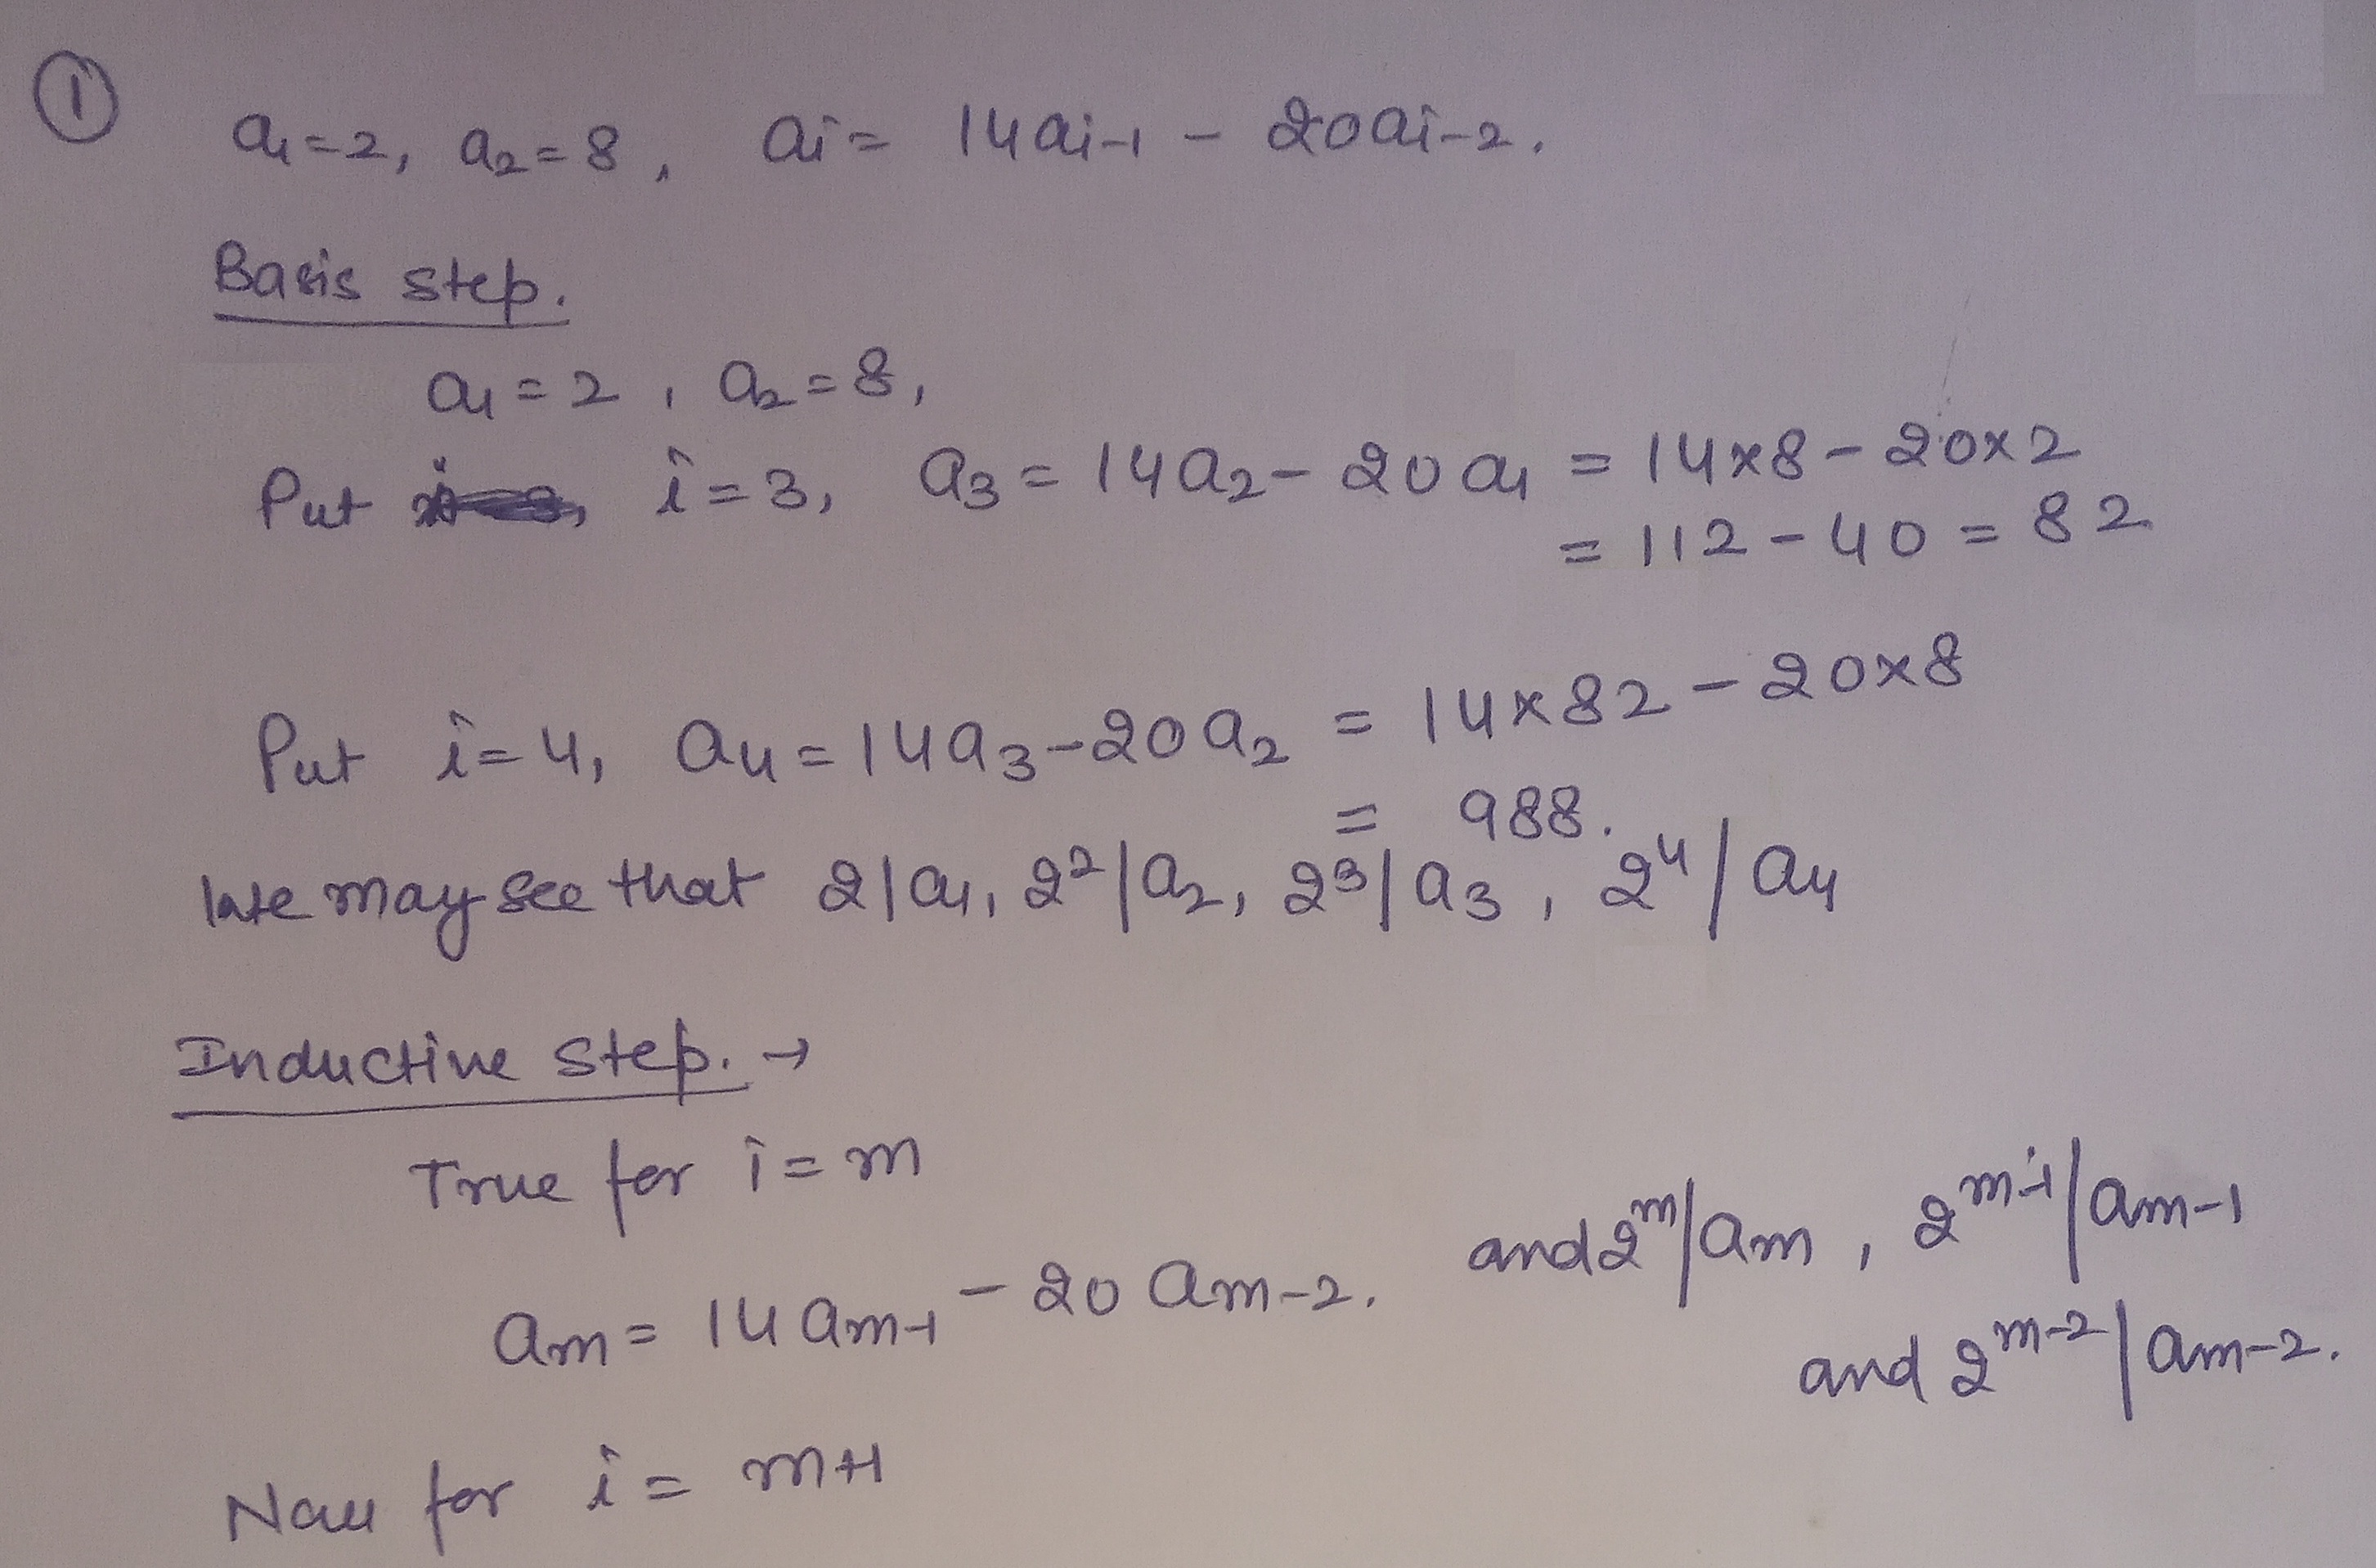 ①
a₁=2, a₂=8, aᵢ= 14aᵢ₋₁ - 20aᵢ₋₂.
Basis step.
a₁=2, a₂=8,
Put i=3, a₃=14a₂-20a₁ = 14×8-20×2
= 112-40=82
Put i=4, a₄=14a₃-20a₂ = 14×82-20×8
= 988.
We may see that 2|a₁, 2²|a₂, 2³|a₃, 2⁴|a₄
Inductive step. →
True for i=m
aₘ= 14aₘ₋₁ - 20aₘ₋₂. and 2ᵐ|aₘ, 2ᵐ⁻¹|aₘ₋₁
and 2ᵐ⁻²|aₘ₋₂.
Now for i= m+1